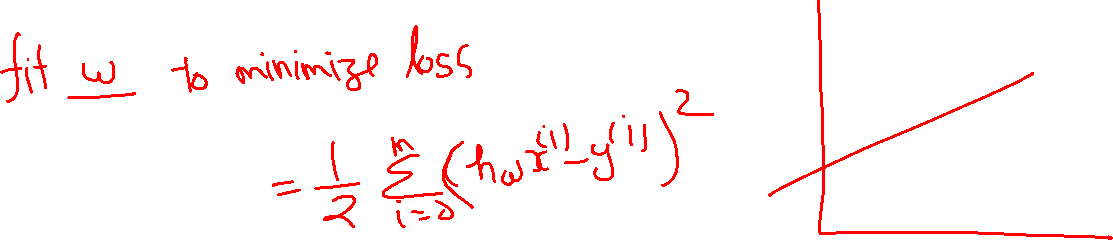 fit w to minimize loss
= 1/2 Σ_{i=0}^{m} (h_w x^{(i)} - y^{(i)})^2